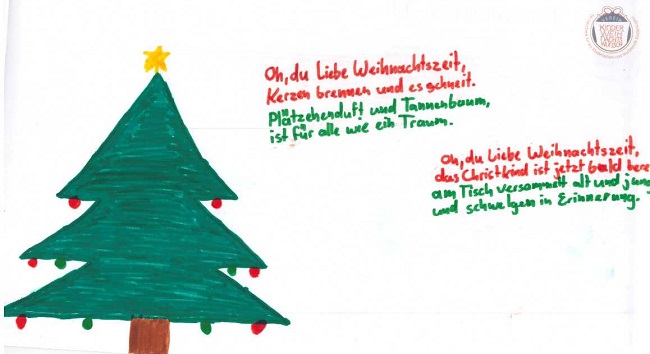 Oh, du liebe Weihnachtszeit,
Kerzen brennen und es schneit.
Plätzchenduft und Tannenbaum,
ist für alle wie ein Traum.
Oh, du liebe Weihnachtszeit,
das Christkind ist jetzt bald
am Tisch versammelt alt und
und schwelgen in Erinnerung.
VEREIN
KINDER
WEIH
NACHTS
WUNSCH